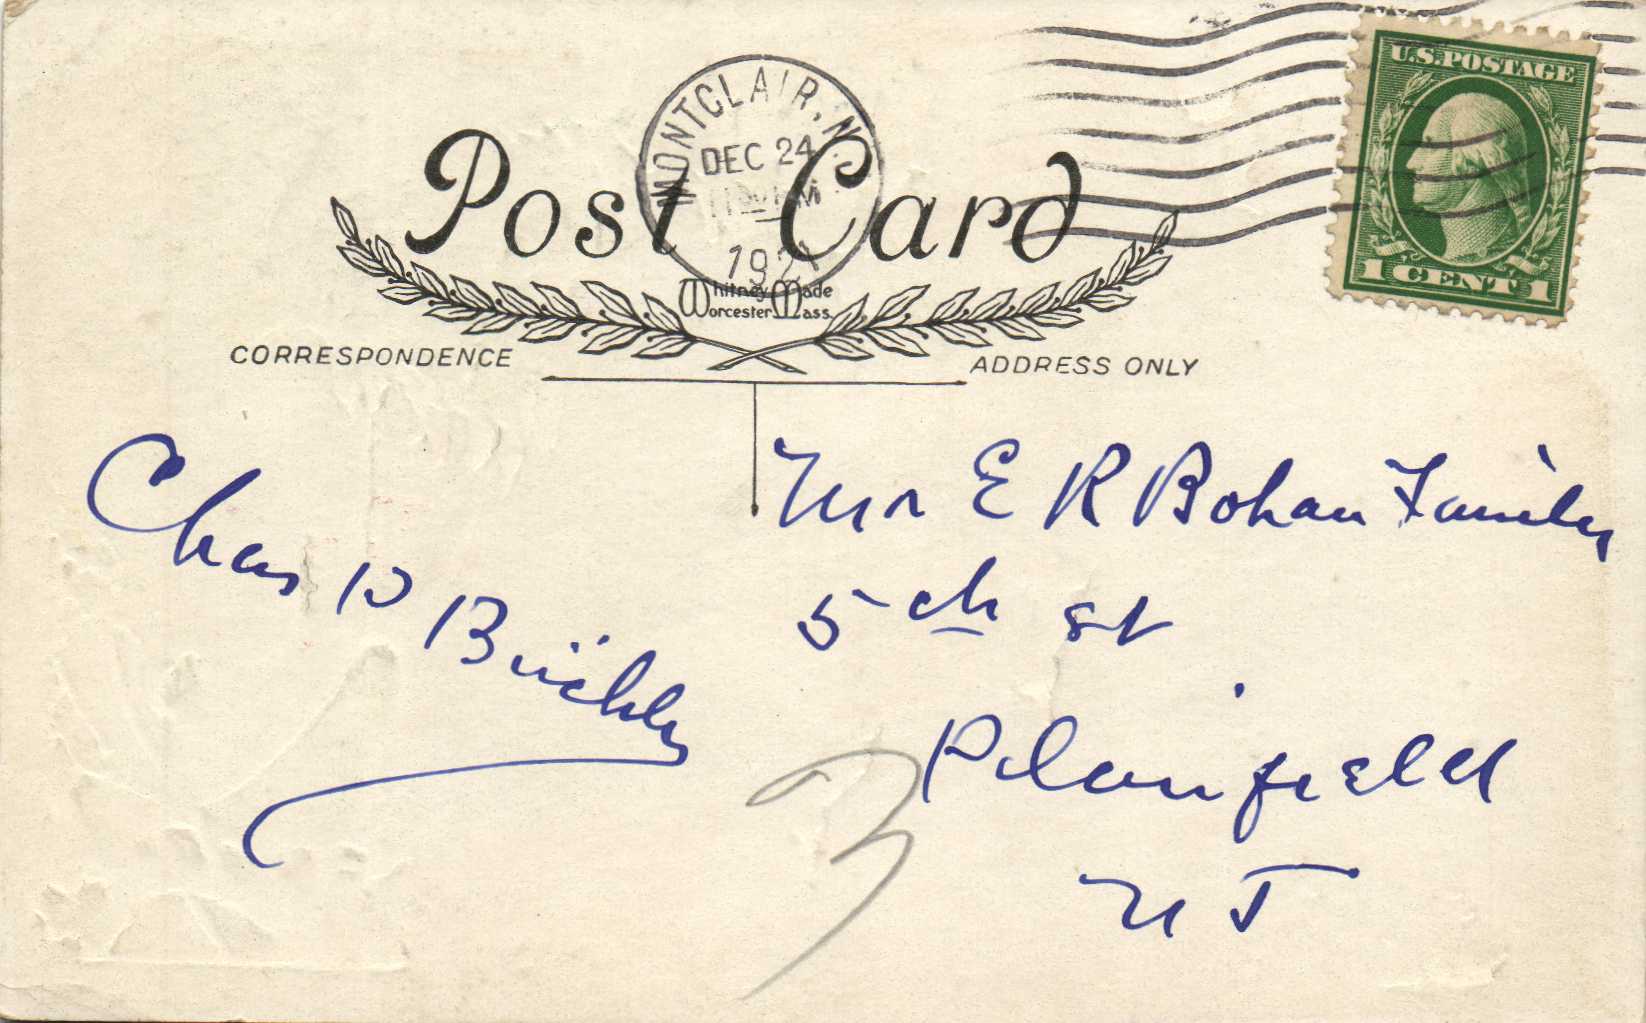 U.S. POSTAGE
1 CENT 1
MONTCLAIR, N
DEC 24
1921
Post Card
Whitney Made
Worcester Mass.
CORRESPONDENCE
ADDRESS ONLY
Mr E R Bohan Family
5th St
Plainfield
N J
Chas D Brickley
3